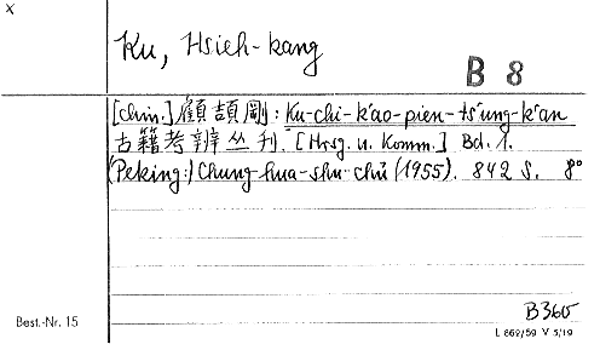 x
Ku, Hsieh-kang
B 8
[chin.] 顧頡剛: Ku-chi-k'ao-pien-ts'ung-k'an
古籍考辨丛刊. [Hrsg. u. Komm.] Bd. 1.
(Peking:) Chung-hua-shu-chü (1955). 842 S. 8°
B360
Best.-Nr. 15
L 862/59 V 5/19